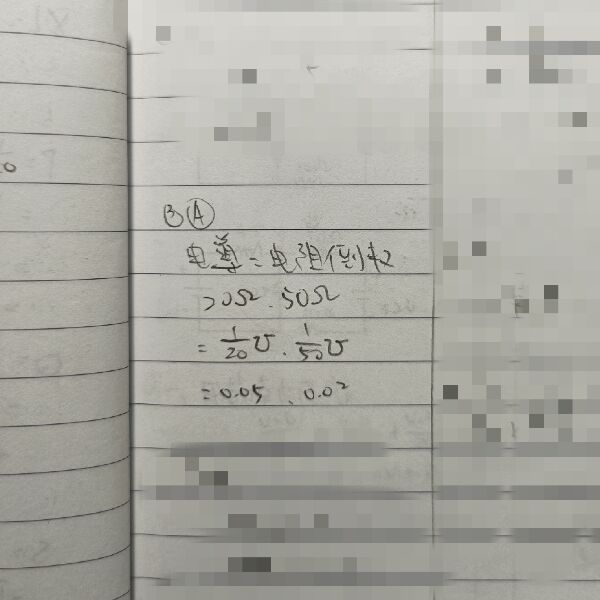 ③Ⓐ
电導=电阻倒权
20Ω、50Ω
= 1/20 ℧、1/50 ℧
=0.05、0.02